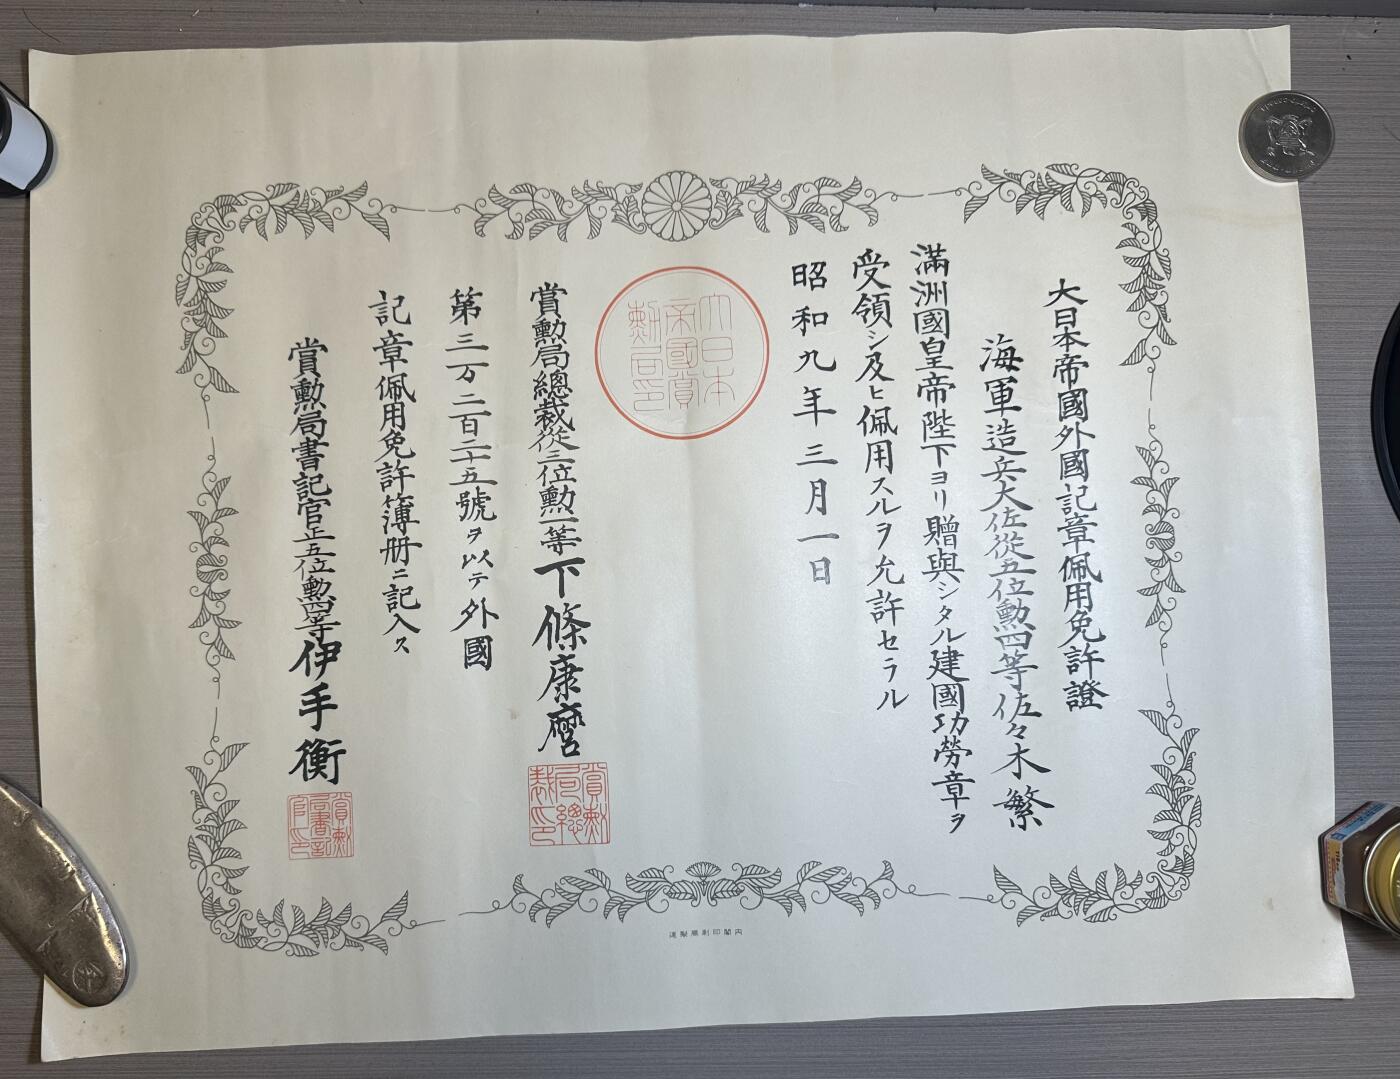 大日本帝國外國記章佩用免許證
海軍造兵大佐從五位勲四等佐々木繁
滿洲國皇帝陛下ヨリ贈與シタル建國功勞章ヲ
受領シ及ヒ佩用スルヲ允許セラル
昭和九年三月一日
大日本
帝國賞
勲局印
賞勲局總裁從三位勲一等下條康麿
賞勲
局總
裁印
第三万二百二十五號ヲ以テ外國
記章佩用免許簿册ニ記入ス
賞勲局書記官正五位勲四等伊手衡
賞勲
局書記
官印
內閣印刷局製造